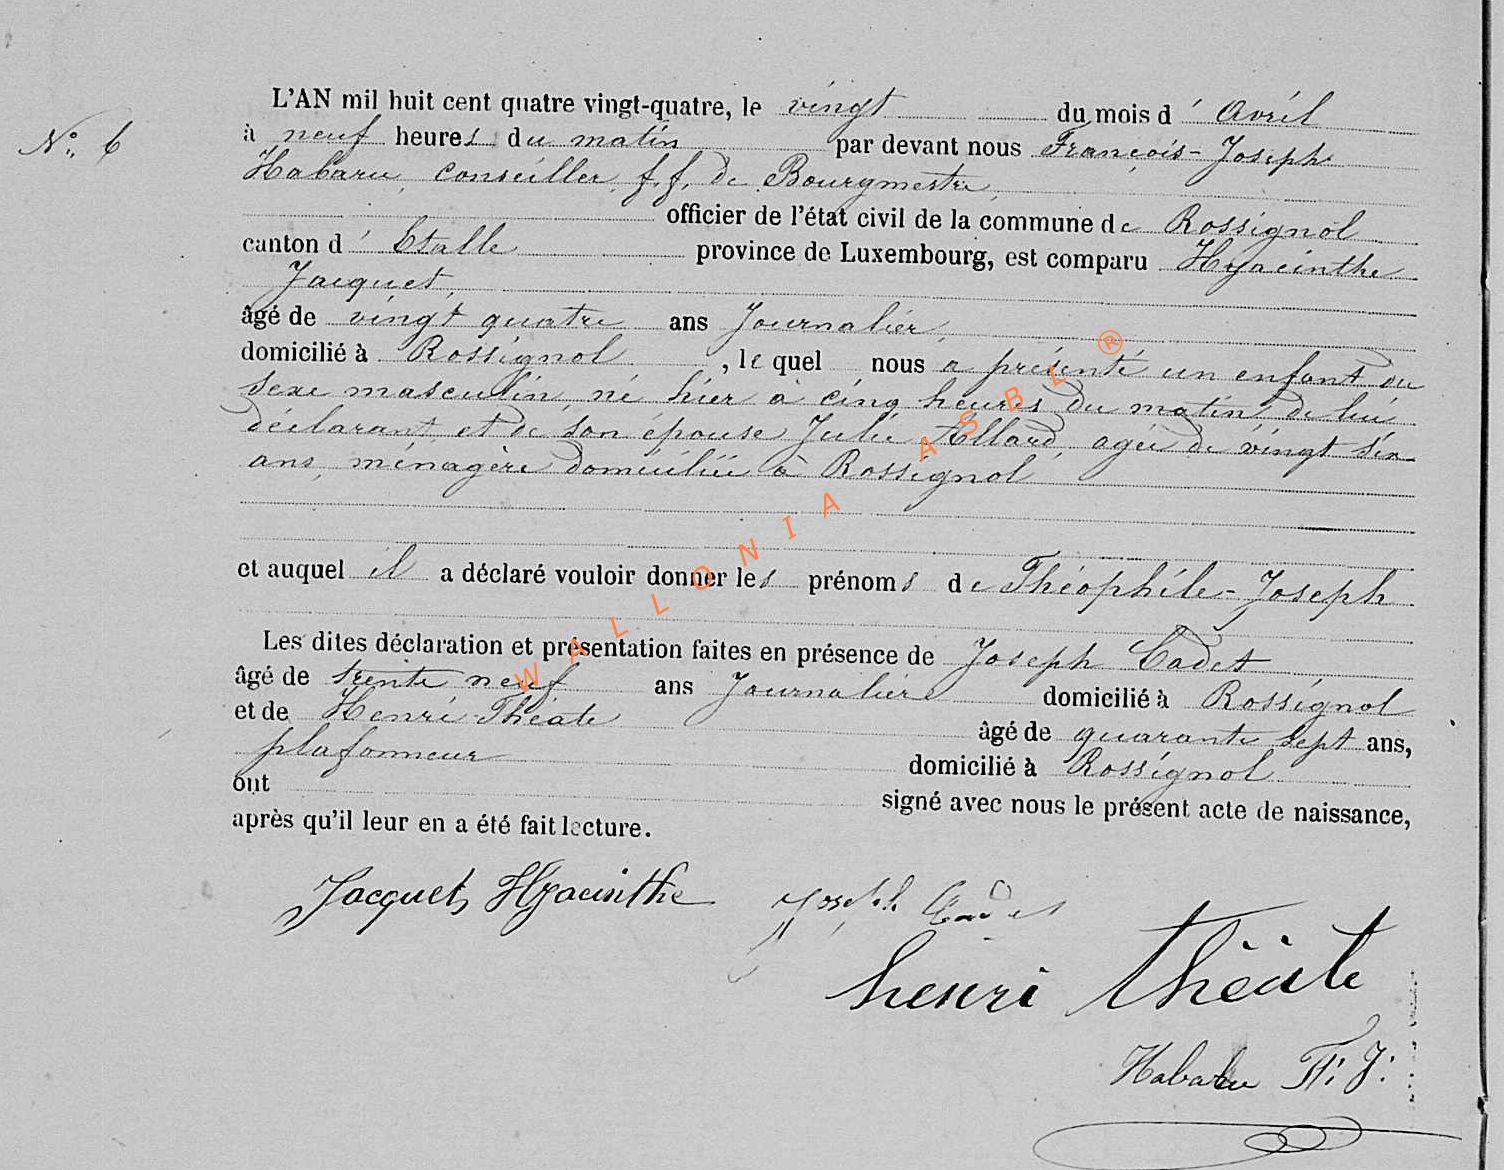 L'AN mil huit cent quatre vingt-quatre, le vingt du mois d' Avril
N° 6
à neuf heures du matin par devant nous François-Joseph
Habaru, Conseiller, f.f. de Bourgmestre,
officier de l'état civil de la commune de Rossignol
canton d' Etalle province de Luxembourg, est comparu Hyacinthe
Jacquet,
âgé de vingt quatre ans Journalier,
domicilié à Rossignol, lequel nous a présenté un enfant du
sexe masculin, né hier à cinq heures du matin, de lui
déclarant et de son épouse Julie Allard, agée de vingt six
ans, ménagère domiciliée à Rossignol
et auquel il a déclaré vouloir donner les prénoms de Théophile-Joseph
Les dites déclaration et présentation faites en présence de Joseph Cadet
âgé de trente neuf ans Journalier domicilié à Rossignol
et de Henri Théate âgé de quarante sept ans,
plafonneur domicilié à Rossignol
ont signé avec nous le présent acte de naissance,
après qu'il leur en a été fait lecture.
Jacquet, Hyacinthe Joseph Cadet
henri théate
Habaru F. J.
WALLONIA ASBL ®